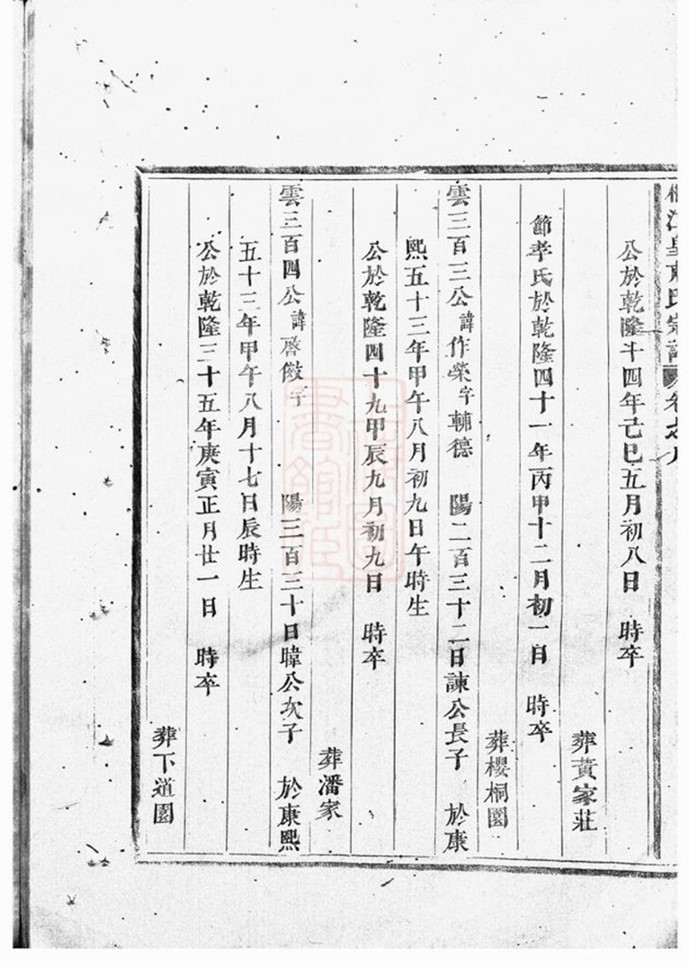 氏宗譜 卷之八
公於乾隆十四年己巳五月初八日 時卒
葬黃家莊
節孝氏於乾隆四十一年丙甲十二月初一日 時卒
葬櫻桐園
雲三百三公諱作榮字輔德 陽二百三十二日諫公長子 於康
熙五十三年甲午八月初九日午時生
公於乾隆四十九甲辰九月初九日 時卒
葬潘家
雲三百四公諱啓 字 陽三百三十日暐公次子 於康熙
五十三年甲午八月十七日辰時生
公於乾隆三十五年庚寅正月廿一日 時卒
葬下道園